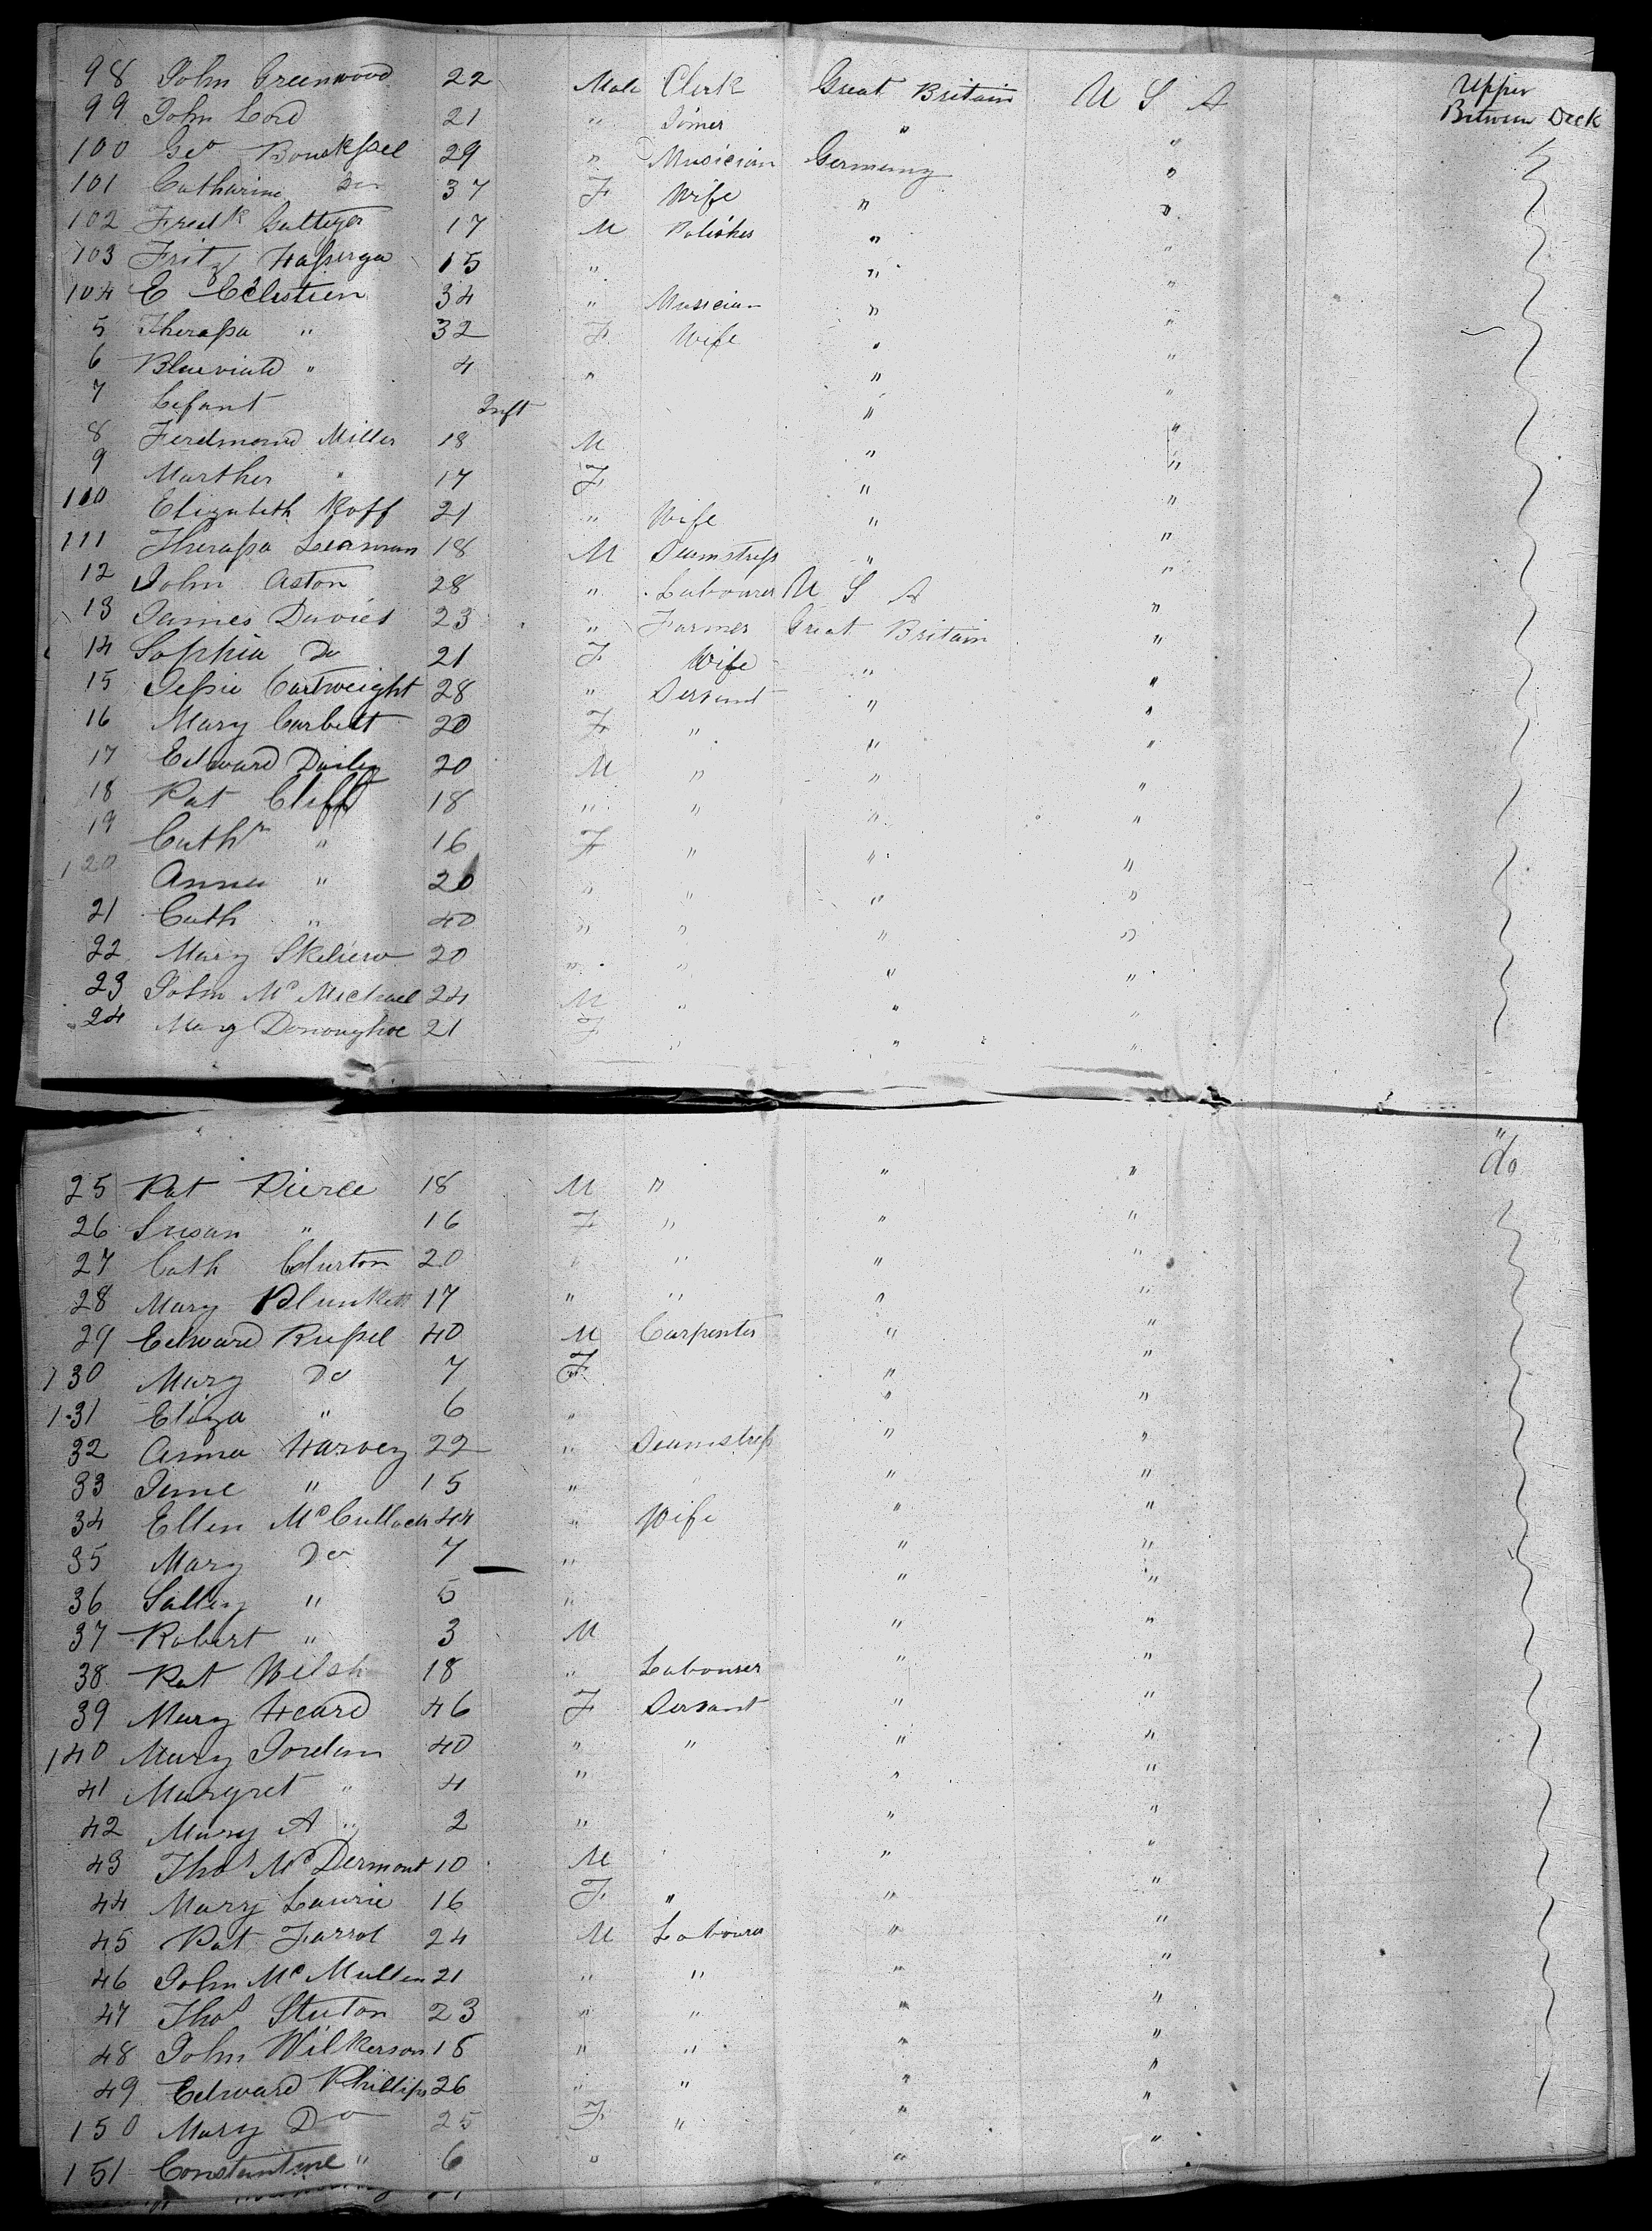 Upper
98 John Greenwood 22 Male Clerk Great Britain U S A Between Deck
99 John Lord 21 " Joiner " "
100 Geo 29 " Musician Germany "
101 Catharine Do 37 F Wife " "
102 Fredk 17 M Polisher " "
103 Fritz 15 " " "
104 E Celestien 34 " Musician " "
5 Theraßa " 32 F Wife " "
6 " 4 " " "
7 Lefant Inft " "
8 Ferdmond Miller 18 M " "
9 Marther " 17 F " "
110 Elizabeth Roff 21 " Wife " "
111 Theraßa 18 M Seamstreß " "
12 John Aston 28 " Labourer U S A "
13 James Davies 23 " Farmer Great Britain "
14 Sophia Do 21 F Wife " "
15 Jeßie Cartweight 28 " Servant " "
16 Mary Carbett 20 F " " "
17 Edward Dailey 20 M " " "
18 Pat Cliff 18 " " " "
19 Cathn " 16 F " " "
120 Anna " 20 " " " "
21 Cath " 40 " " " "
22 Mary 20 " " " "
23 John Mc Michael 24 M " " "
24 Mary Donoughoe 21 F " " "
" do
25 Pat Pierce 18 M " " "
26 Susan " 16 F " " "
27 Cath 20 " " " "
28 Mary Plunkett 17 " " " "
29 Edward Rußel 40 M Carpenter " "
130 Mary Do 7 F " "
131 Eliza " 6 " " "
32 Anna Harvey 22 " Seamstreß " "
33 Jane " 15 " " "
34 Ellen McCulloch 44 " Wife " "
35 Mary Do 7 " " "
36 Salley " 5 " " "
37 Robert " 3 M " "
38 Pat Welsh 18 " Labourer " "
39 Mary Heard 46 F Servant " "
140 Mary Jordan 40 " " " "
41 Margret " 4 " " "
42 Mary A " 2 " " "
43 Thos McDermont 10 M " "
44 Mary Laurie 16 F " " "
45 Pat Farrol 24 M Labourer " "
46 John Mc Mullen 21 " " " "
47 Thos Stuton 23 " " " "
48 John Wilkerson 18 " " " "
49 Edward Phillips 26 " " " "
150 Mary Do 25 F " " "
151 Constantine " 6 " " "